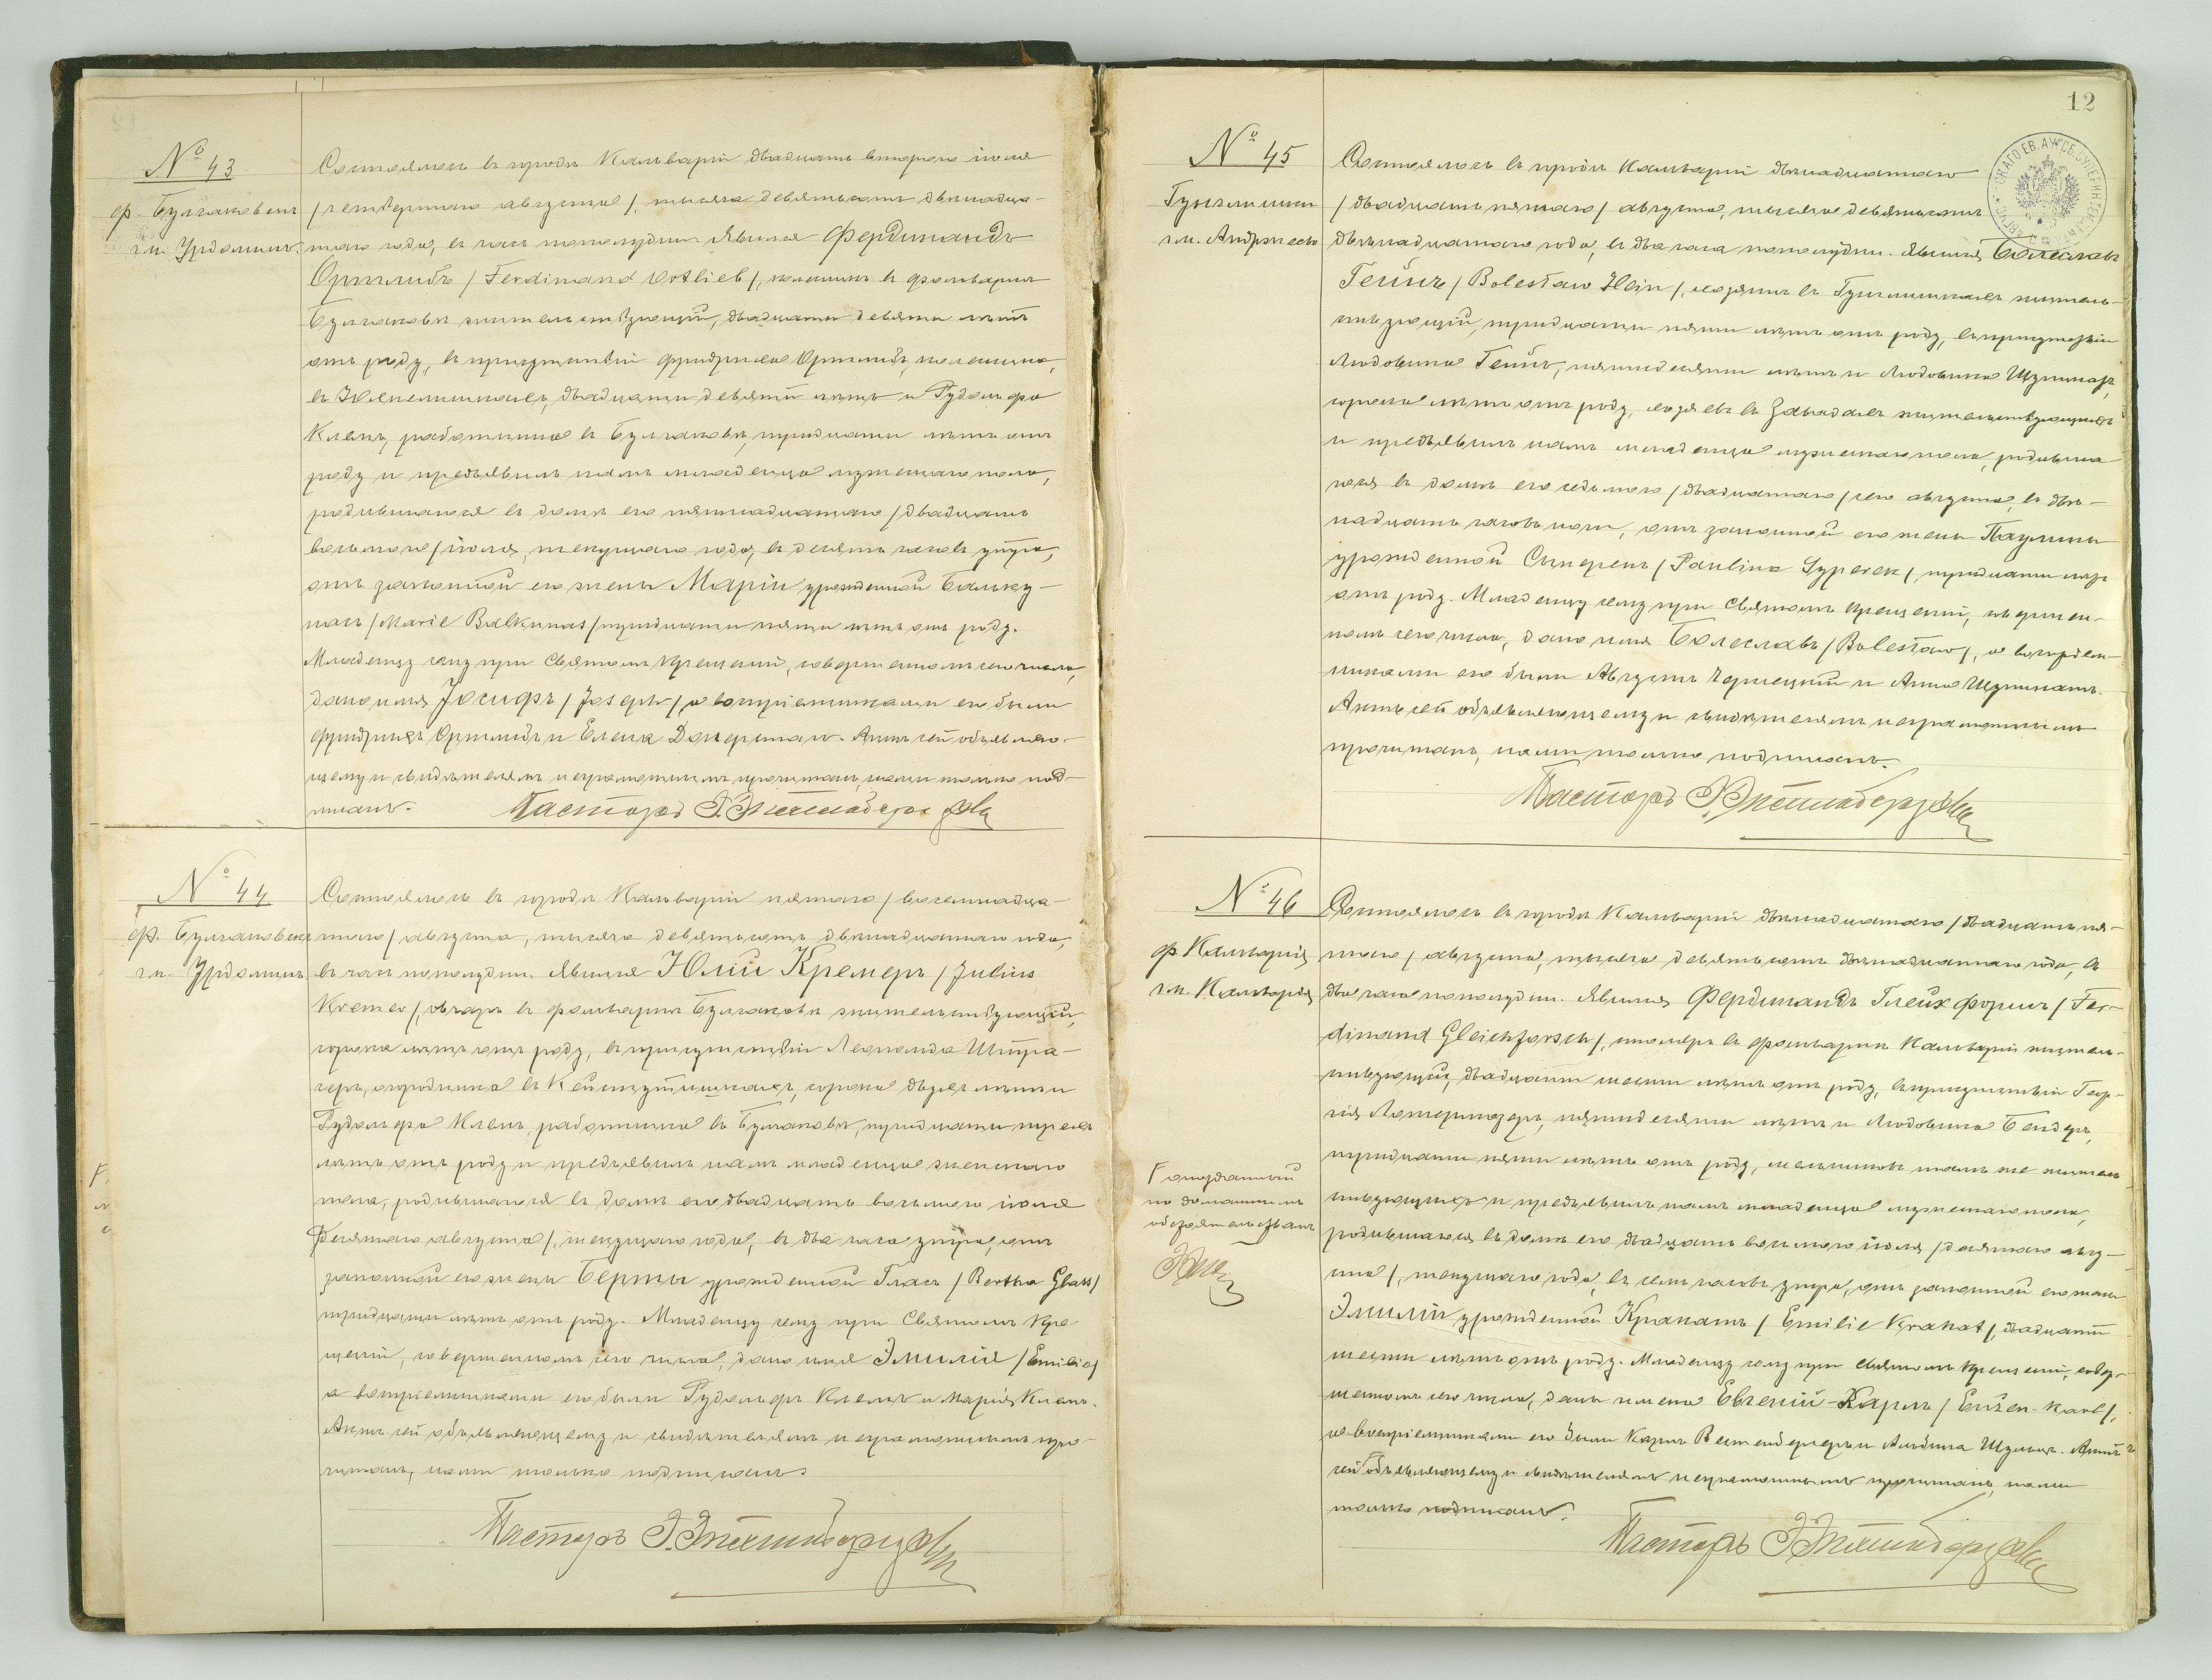 № 43
ф. Булаковскъ
гм. Урдоминъ
Состоялось въ городѣ Кальваріи двадцать второго іюля
/четвертаго августа/, тысяча девятьсотъ двѣнадца-
таго года, въ часъ пополудни. Явился Фердинандъ
Ортлибъ /Ferdinand Ortlieb/, въ фольваркѣ
Булаковкѣ жительствующій, двадцати девяти лѣтъ
отъ роду, въ присутствіи Фридриха Ортлибъ,
двадцати девяти лѣтъ и Рудольфа
Клемъ, работника въ Булаковкѣ, тридцати лѣтъ отъ
роду и предъявилъ намъ младенца мужескаго пола,
родившагося въ домѣ его пятнадцатаго /двадцать
восьмого/ іюля, текущаго года, въ десять часовъ утра,
отъ законной его жены Маріи урожденной Бальку-
насъ /Marie Balkunas/ тридцати пяти лѣтъ отъ роду.
Младенцу сему при Святомъ Крещеніи, совершенномъ сего числа,
дано имя Іосифъ /Joseph/, а воспріемниками его были
Фридрихъ Ортлибъ и Елена. Актъ сей объявляю-
щему и свидѣтелямъ неграмотнымъ прочитанъ, нами только под-
писанъ. Пасторъ
№ 44
ф. Булаковскъ
гм. Урдоминъ
Состоялось въ городѣ Кальваріи пятаго /восемнадца-
таго/ августа, тысяча девятьсотъ двѣнадцатаго года,
въ часъ пополудни. Явился Юлій Кремеръ /Julius
Kremer/, овчаръ въ фольваркѣ Булаковкѣ жительствующій,
сорока лѣтъ отъ роду, въ присутствіи Леопольда Штра-
серъ, огородника въ, сорока двухъ лѣтъ и
Рудольфа Клемъ, работника въ Булаковкѣ, тридцати трехъ
лѣтъ отъ роду и предъявилъ намъ младенца женскаго
пола, родившагося въ домѣ его двадцать восьмого іюля
/десятаго августа/, текущаго года, въ два часа утра, отъ
законной его жены Берты урожденной Гласъ /Bertha Glass/
тридцати лѣтъ отъ роду. Младенцу сему при Святомъ Кре-
щеніи, совершенномъ сего числа, дано имя Эмилія /Emilie/
а воспріемниками его были Рудольфъ Клемъ и Марія Клемъ.
Актъ сей объявляющему и свидѣтелямъ неграмотнымъ про-
читанъ, нами только подписанъ.
Пасторъ
12
№ 45
гм. Андржеево
Состоялось въ городѣ Кальваріи двѣнадцатаго
/двадцать пятаго/ августа, тысяча девятьсотъ
двѣнадцатаго года, въ два часа пополудни. Явился Болеславъ
Гейнъ /Bolesław Hein/, хозяинъ въ житель-
ствующій, тридцати пяти лѣтъ отъ роду, въ присутствіи
Людовика Гейнъ, пятидесяти лѣтъ и Людовика
сорока лѣтъ отъ роду, хозяевъ въ Завадахъ жительствующихъ
и предъявилъ намъ младенца мужескаго пола, родивша-
гося въ домѣ его седьмого /двадцатаго/ сего августа, въ двѣ-
надцать часовъ ночи, отъ законной его жены Паулины
урожденной Сыперекъ /Paulina Syperek/, тридцати лѣтъ
отъ роду. Младенцу сему при Святомъ Крещеніи, совершен-
номъ сего числа, дано имя Болеславъ /Bolesław/, а воспріем-
никами его были Августъ и Анна.
Актъ сей объявляющему и свидѣтелямъ неграмотнымъ
прочитанъ, нами только подписанъ.
Пасторъ
№ 46
ф. Кальварія
гм. Кальварія
Состоялось въ городѣ Кальваріи двѣнадцатаго /двадцать пя-
таго/ августа, тысяча девятьсотъ двѣнадцатаго года, въ
два часа пополудни. Явился Фердинандъ Глейхфоршъ /Fer-
dinand Gleichforsch/, столяръ въ фольваркѣ Кальваріи житель-
ствующій, двадцати шести лѣтъ отъ роду, въ присутствіи Геор-
гія, пятидесяти лѣтъ и Людовика Бендеръ,
тридцати пяти лѣтъ отъ роду, тамъ же житель-
ствующихъ и предъявилъ намъ младенца мужескаго пола,
родившагося въ домѣ его двадцать восьмого іюля /десятаго авгу-
ста/, текущаго года, въ семь часовъ утра, отъ законной его жены
Эмиліи урожденной Кракатъ /Emilie Krakat/, двадцати
шести лѣтъ отъ роду. Младенцу сему при Святомъ Крещеніи, совер-
шенномъ сего числа, даны имена Евгеній-Карлъ /Eugen-Karl/,
а воспріемниками его были Карлъ и Альбина Шульцъ. Актъ
сей объявляющему и свидѣтелямъ неграмотнымъ прочитанъ, нами
только подписанъ.
опозданный
по домашнимъ
обстоятельствамъ
Пасторъ